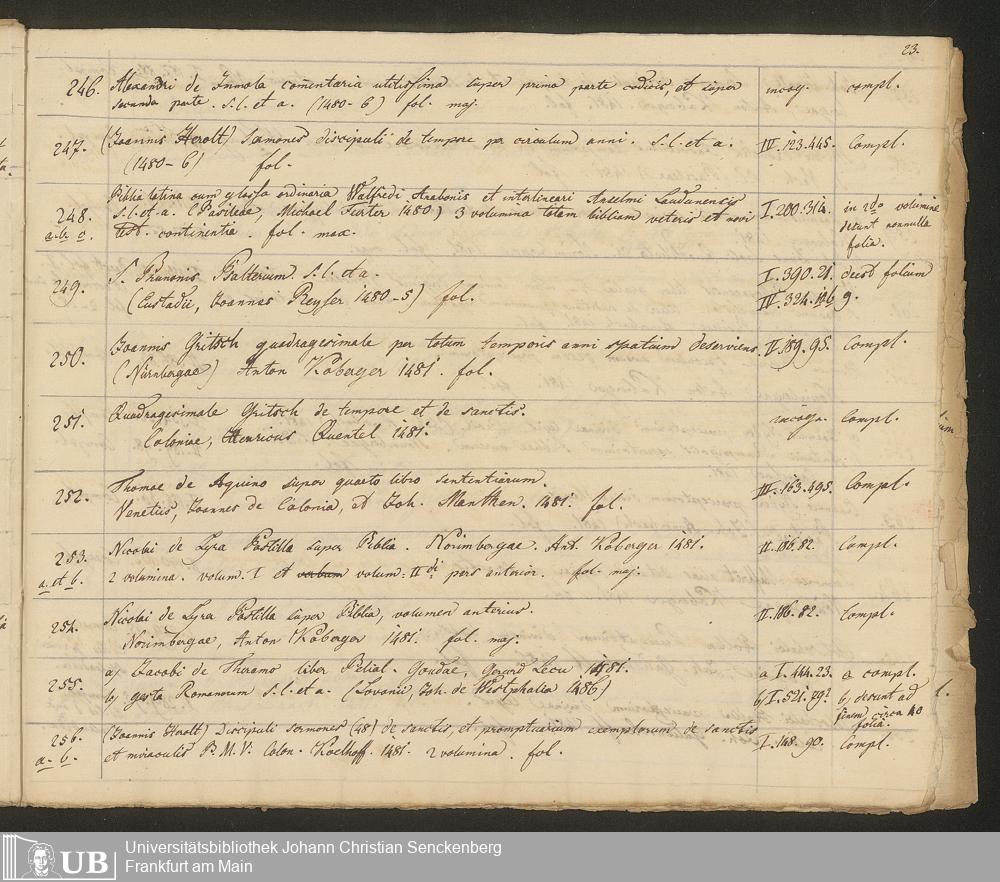 23.
246. Alexandri de Immola comentaria utilissima super prima parte codicis, et super incog. compl.
secunda parte. s. l. et a. (1480-6) fol. maj.
247. (Joannis Herolt) Sermones discipuli de tempore per circulum anni. s. l. et a. III. 123. 445. Compl.
(1480-6) fol.
Biblia latina cum glossa ordinaria Walfredi Strabonis et interlineari Anselmi Laudunensis
248. s. l. et. a. (Basileae, Michael Furter 1480) 3 volumina totam bibliam veteris et novi I. 280. 314. in 2do volumine
a. b. c. test. continentia. fol. max. desunt nonnulla
folia.
249. S. Brunonis Psalterium. s. l. et a. I. 390. 21. deest folium
(Eustadii, Joannes Reyser 1480-5) fol. III. 324. 126 9.
250. Joannis Gritsch quadragesimale per totum temporis anni spatium deserviens. II. 189. 95. Compl.
(Nürnbergae) Anton Koberger 1481. fol.
251. Quadragesimale Gritsch de tempore et de sanctis. incogn. Compl.
Coloniae, Henricus Quentel 1481.
252. Thomae de Aquino super quarto libro sententiarum. III. 163. 495. Compl.
Venetiis, Joannes de Colonia, et Joh. Manthen. 1481. fol.
253. Nicolai de Lyra Postilla super Biblia. Norimbergae. Ant. Koberger 1481. II. 186. 82. Compl.
a. et b. 2 volumina. volum. I et volum: II di pars anterior. fol. maj.
254. Nicolai de Lyra Postilla super Biblia, volumen anterius. II. 186. 82. Compl.
Norimbergae, Anton Koberger 1481. fol. maj.
255. a) Jacobi de Theramo liber Belial. Goudae, Gerard Leeu 1481. a I. 444. 23. a compl.
b) gesta Romanorum s. l. et a. (Lovanii, Joh. de Westphalia 1486) b) I. 521. 79. b) desunt ad
finem circa 40
folia.
256. (Joannis Herolt) Discipuli sermones (48) de sanctis, et promptuarium exemplorum de sanctis I. 148. 90. Compl.
a. b. et miraculis B. M. V. Colon. Koelhoff. 1481. 2 volumina. fol.
UB Universitätsbibliothek Johann Christian Senckenberg
Frankfurt am Main